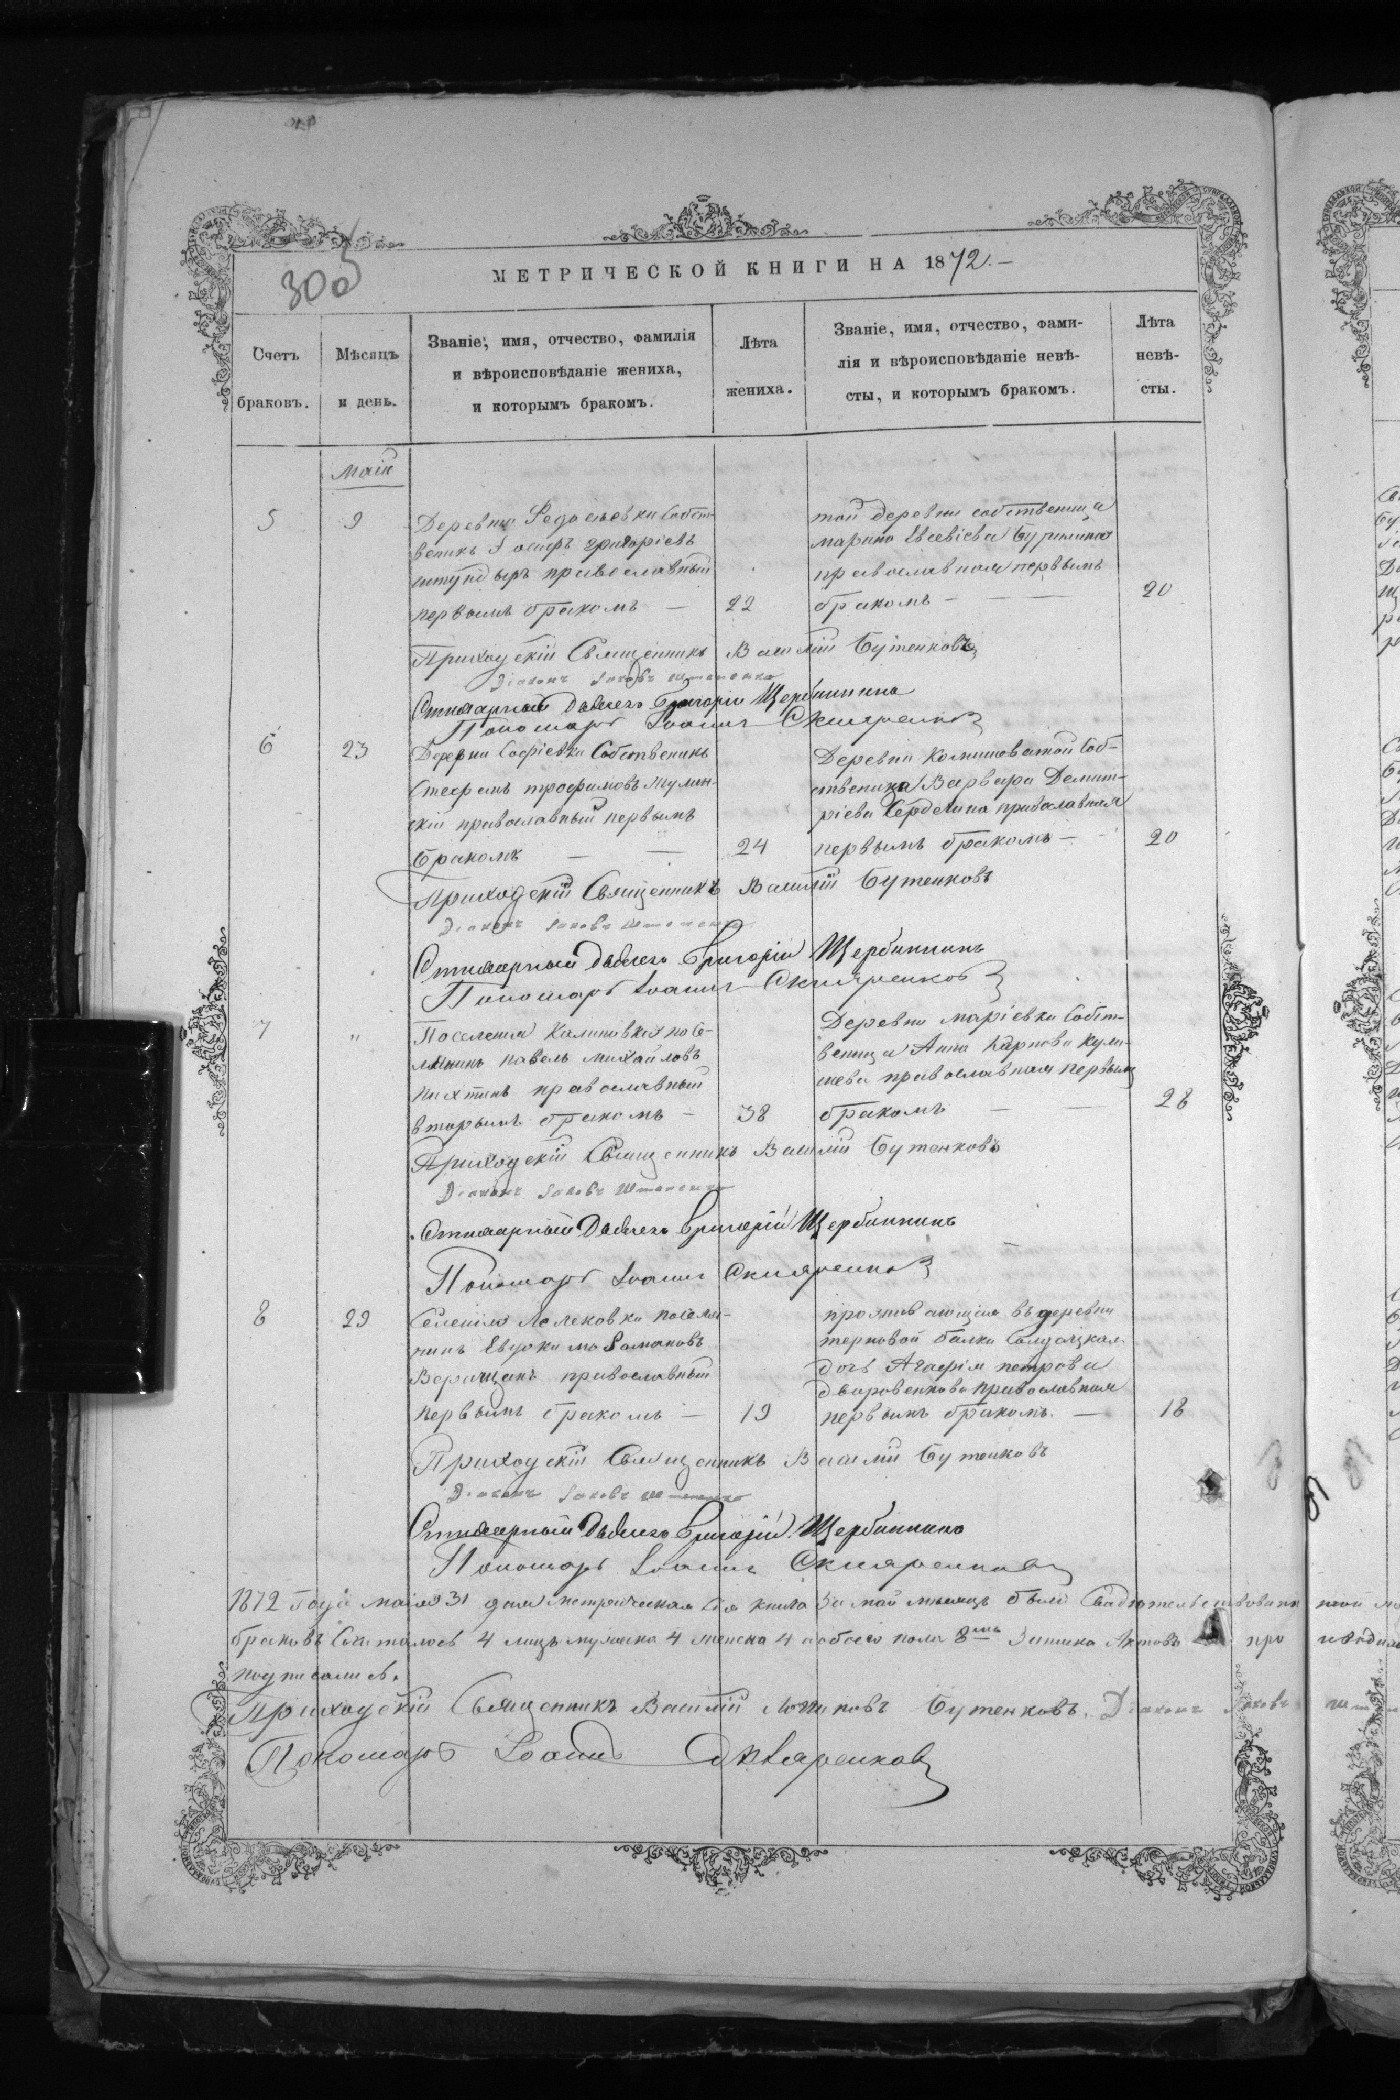 МЕТРИЧЕСКОЙ КНИГИ НА 1872.–
300
Счетъ браковъ.
Мѣсяцъ и день.
Званіе, имя, отчество, фамилія
и вѣроисповѣданіе жениха,
и которымъ бракомъ.
Лѣта
жениха.
Званіе, имя, отчество, фами-
лія и вѣроисповѣданіе невѣ-
сты, и которымъ бракомъ.
Лѣта
невѣ-
сты.
маій
5
9
Деревни Федосьевки Собст-
веникъ Іосифъ григоріевъ
православный
первымъ бракомъ –
22
той деревни собственица
марина Евсевіева
православная первымъ
бракомъ – – –
20
Приходскій Священникъ Василій Бутенковъ
Діаконъ Іаковъ
Стихарный Дьячекъ Григорій Щербининъ
Пономарь Іоаннъ Скляренков
6
23
Деревни Софіевки Собственикъ
Стефанъ трофимовъ Мулин-
скій православный первымъ
бракомъ – –
24
Деревни Камышеватой Соб-
ственица Варвара Демит-
ріева православная
первымъ бракомъ –
20
Приходскій Священникъ Василій Бутенковъ
Діаконъ Іаковъ
Стихарный Дьячекъ Григорій Щербининъ
Пономарь Іоаннъ Скляренков
7
"
Поселенія Калиновки посе-
лянинъ павелъ михайловъ
православный
вторымъ бракомъ –
38
Деревни маріевки Собст-
веница Анна Карпова Кули-
шева православная первымъ
бракомъ – –
28
Приходскій Священникъ Василій Бутенковъ
Діаконъ Іаковъ
Стихарный Дьячекъ Григорій Щербининъ
Пономарь Іоаннъ Скляренков
8
29
Селенія поселя-
нинъ Евдокимъ Романовъ
православный
первымъ бракомъ –
19
проживающая въ деревни
терновой балки Солдацкая
дочь Агафія петрова
православная
первымъ бракомъ. –
18
Приходскій Священникъ Василій Бутенковъ
Діаконъ Іаковъ
Стихарный Дьячекъ Григорій Щербининъ
Пономарь Іоаннъ Скляренков
1872 Года маія 31 дня метрическая Сія книга За май месяцъ
браковъ Считалось 4 лицъ мужска 4 женска 4 обоего пола 8мь
подписались.
Приходскій Священникъ Василій Логиновъ Бутенковъ. Діаконъ Іаковъ
Пономарь Іоаннъ Скляренков